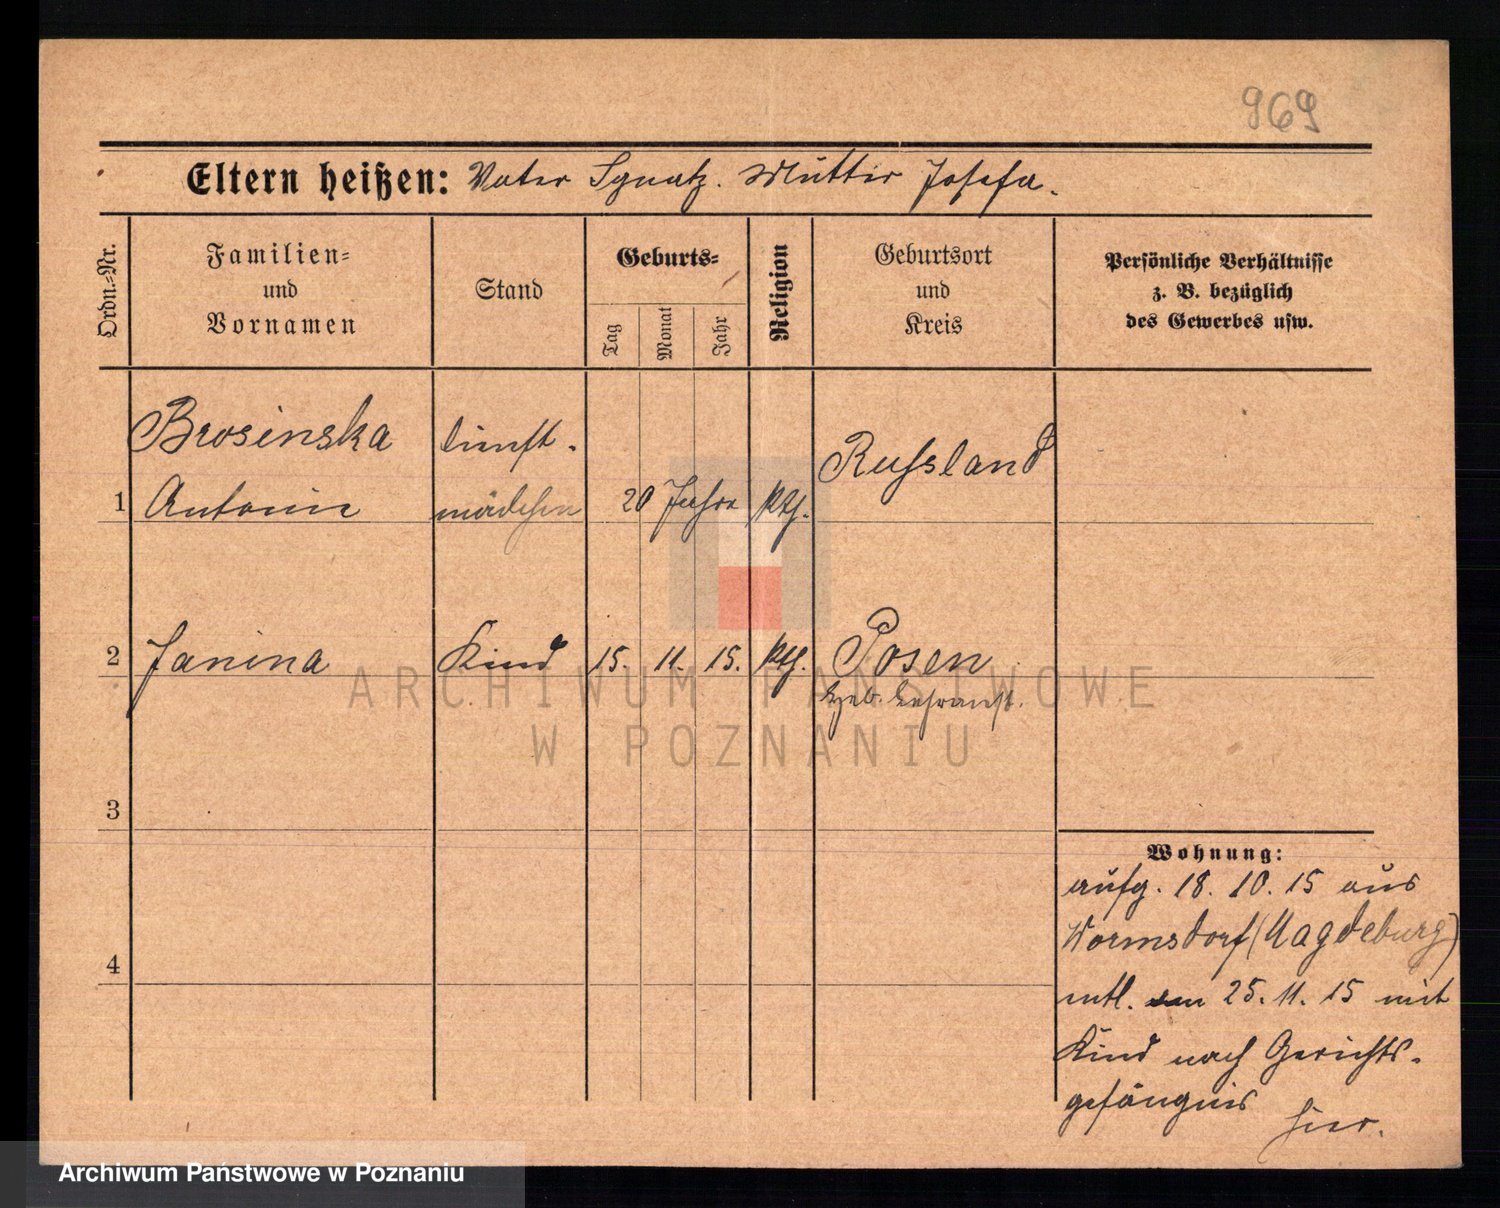 969
Eltern heißen: Vater Ignatz. Mutter Josefa.
Ordn.-Nr.
Familien-
und
Vornamen
Stand
Geburts-
Tag
Monat
Jahr
Religion
Geburtsort
und
Kreis
Persönliche Verhältnisse
z. B. bezüglich
des Gewerbes usw.
Brosinska
Dienst-
Russland
1 Antonie
mädchen
20 Jahre
kth.
2 Janina
Kind
15. 11. 15.
kth.
Posen
Heb. Lehranst.
3
4
Wohnung:
aufg. 18. 10. 15 aus
Wormsdorf (Magdeburg)
entl. am 25. 11. 15 mit
Kind nach Gerichts-
gefängnis
hier.
ARCHIWUM PAŃSTWOWE
W POZNANIU
Archiwum Państwowe w Poznaniu